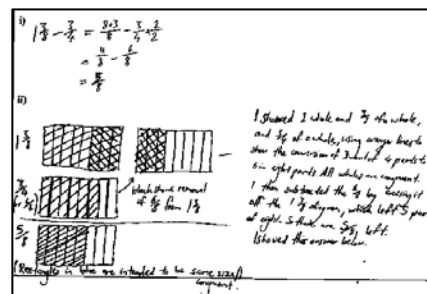 i)
1 3/8 - 3/4 = 8+3/8 - 3/4 × 2/2
= 11/8 - 6/8
= 5/8
ii)
1 3/8
5/8
black shows removal
of 6/8 from 1 3/8
I showed 1 whole and 3/8 of a whole,
and 3/4 of a whole, using orange lines to
show the conversion of 3 out of 4 parts to
6 in eight parts. All wholes are congruent.
I then subtracted the 6/8 by crossing it
off the 1 3/8 diagram, which left 5 parts
of eight. So there are 5/8 left.
I showed this answer below.
(Rectangles in are intended to be same size/
congruent.